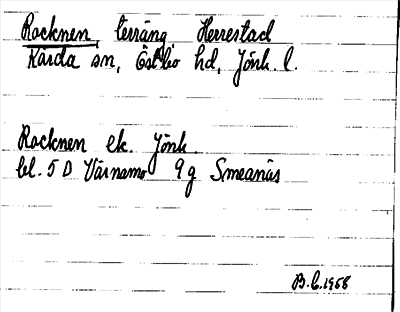 Rocknen, terräng Herrestad
Kärda sn, Östbo hd, Jönk. l.
Rocknen ek. Jönk.
bl. 5 D Värnamo 9 g Smeanäs
B. L. 1968